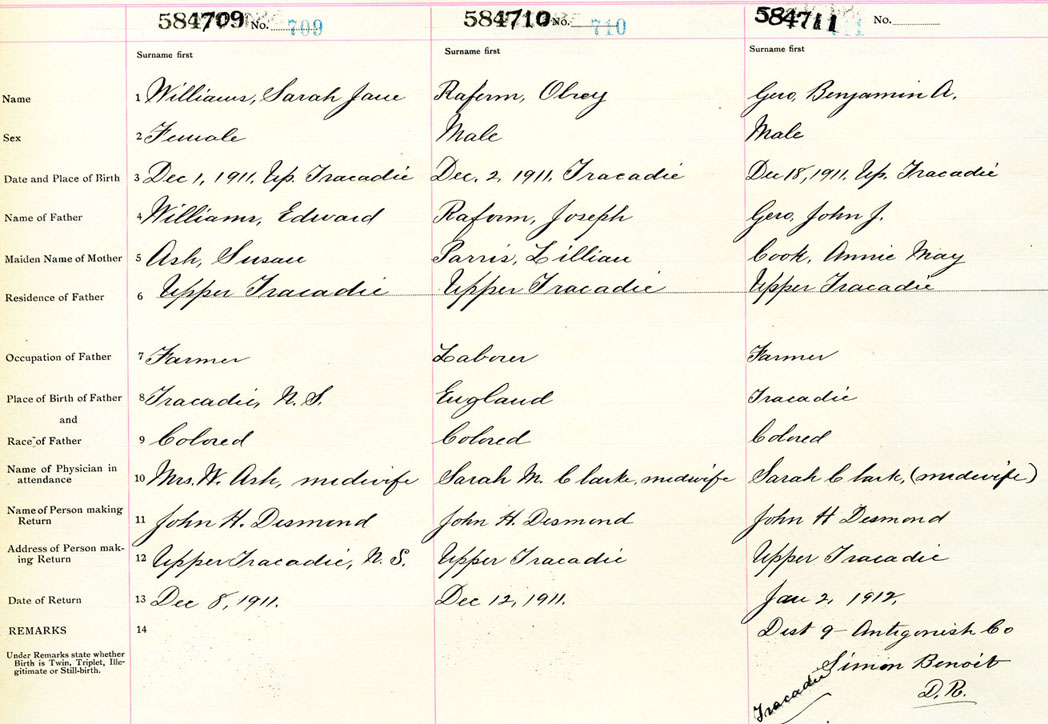 584709 No. 709
584710 No. 710
584711 711 No.
Surname first Surname first Surname first
Name 1 Williams, Sarah Jane Raform, Obrey Gero, Benjamin A.
Sex 2 Female Male Male
Date and Place of Birth 3 Dec 1, 1911, Up. Tracadie Dec. 2, 1911. Tracadie Dec 18, 1911. Up. Tracadie
Name of Father 4 Williams, Edward Raform, Joseph Gero, John J.
Maiden Name of Mother 5 Ash, Susan Parris, Lillian Cook, Annie May
Residence of Father 6 Upper Tracadie Upper Tracadie Upper Tracadie
Occupation of Father 7 Farmer Laborer Farmer
Place of Birth of Father 8 Tracadie, N.S. England Tracadie
and
Race of Father 9 Colored Colored Colored
Name of Physician in
attendance 10 Mrs. W. Ash, midwife Sarah M. Clarke, midwife Sarah Clark, (midwife)
Name of Person making
Return 11 John H. Desmond John H. Desmond John H Desmond
Address of Person mak-
ing Return 12 Upper Tracadie, N.S. Upper Tracadie Upper Tracadie
Date of Return 13 Dec 8, 1911. Dec 12, 1911. Jan 2, 1912,
REMARKS 14 Dist 9 - Antigonish Co
Under Remarks state whether
Birth is Twin, Triplet, Ille-
gitimate or Still-birth.
Simon Benoit
Tracadie D.R.